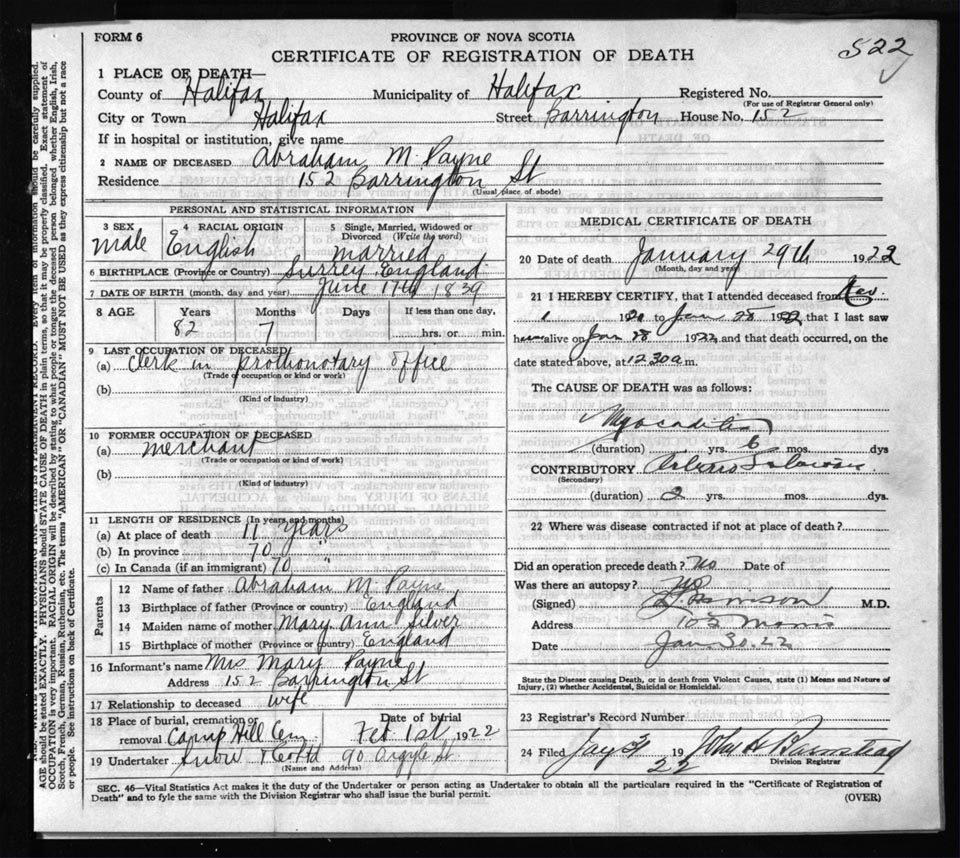 FORM 6
PROVINCE OF NOVA SCOTIA
CERTIFICATE OF REGISTRATION OF DEATH
522
1 PLACE OF DEATH—
County of Halifax Municipality of Halifax Registered No.
(For use of Registrar General only)
City or Town Halifax Street Barrington House No. 152
If in hospital or institution, give name
2 NAME OF DECEASED Abraham M. Payne
Residence 152 Barrington St
(Usual place of abode)
PERSONAL AND STATISTICAL INFORMATION
3 SEX male
4 RACIAL ORIGIN English
5 Single, Married, Widowed or Divorced (Write the word) married
6 BIRTHPLACE (Province or Country) Surrey England
7 DATE OF BIRTH (month, day and year) June 17th 1839
8 AGE Years Months Days If less than one day,
82 7 hrs. or min.
9 LAST OCCUPATION OF DECEASED
(a) Clerk in prothonotary office
(Trade or occupation or kind of work)
(b)
(Kind of industry)
10 FORMER OCCUPATION OF DECEASED
(a) merchant
(Trade or occupation or kind of work)
(b)
(Kind of industry)
11 LENGTH OF RESIDENCE (In years and months)
(a) At place of death 11 years
(b) In province 70 "
(c) In Canada (if an immigrant) 70 "
Parents
12 Name of father Abraham M. Payne
13 Birthplace of father (Province or country) England
14 Maiden name of mother Mary Ann Silver
15 Birthplace of mother (Province or country) England
16 Informant's name Mrs Mary Payne
Address 152 Barrington St
17 Relationship to deceased wife
18 Place of burial, cremation or removal Camp Hill Cem Date of burial Feb 1st 1922
19 Undertaker Snow & Co Ltd 90 Argyle St
(Name and Address)
MEDICAL CERTIFICATE OF DEATH
20 Date of death January 29th 1922
(Month, day and year)
21 I HEREBY CERTIFY, that I attended deceased from Nov.
1 to Jan 28 1922 that I last saw
him alive on Jan 28 1922 and that death occurred, on the
date stated above, at 12.30 a.m.
The CAUSE OF DEATH was as follows:
Myocarditis
(duration) yrs. 6 mos. dys
CONTRIBUTORY Arterio Sclerosis
(Secondary)
(duration) 2 yrs. mos. dys.
22 Where was disease contracted if not at place of death?
Did an operation precede death? No Date of
Was there an autopsy? No
(Signed) M.D.
Address Morris
Date Jan. 30. 22
State the Disease causing Death, or in death from Violent Causes, state (1) Means and Nature of
Injury, (2) whether Accidental, Suicidal or Homicidal.
23 Registrar's Record Number
24 Filed 31 1922 John A
Division Registrar
SEC. 46—Vital Statistics Act makes it the duty of the Undertaker or person acting as Undertaker to obtain all the particulars required in the "Certificate of Registration of
Death" and to fyle the same with the Division Registrar who shall issue the burial permit.
(OVER)
Every item of information should be carefully supplied.
AGE should be stated EXACTLY. PHYSICIANS should STATE CAUSE OF DEATH in plain terms, so that it may be properly classified. Exact statement of
OCCUPATION is very important. RACIAL ORIGIN will be described by stating to what people or tongue the deceased person belonged, whether English, Irish,
Scotch, French, German, Russian, Ruthenian, etc. The terms "AMERICAN" OR "CANADIAN" MUST NOT BE USED as they express citizenship but not a race
or people. See instructions on back of Certificate.